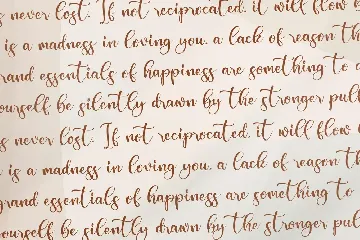 never lost. If not reciprocated, it will flow
is a madness in loving you, a lack of reason
grand essentials of happiness are something to
yourself be silently drawn by the stronger pull
never lost. If not reciprocated, it will flow
is a madness in loving you, a lack of reason
grand essentials of happiness are something to
yourself be silently drawn by the stronger pull